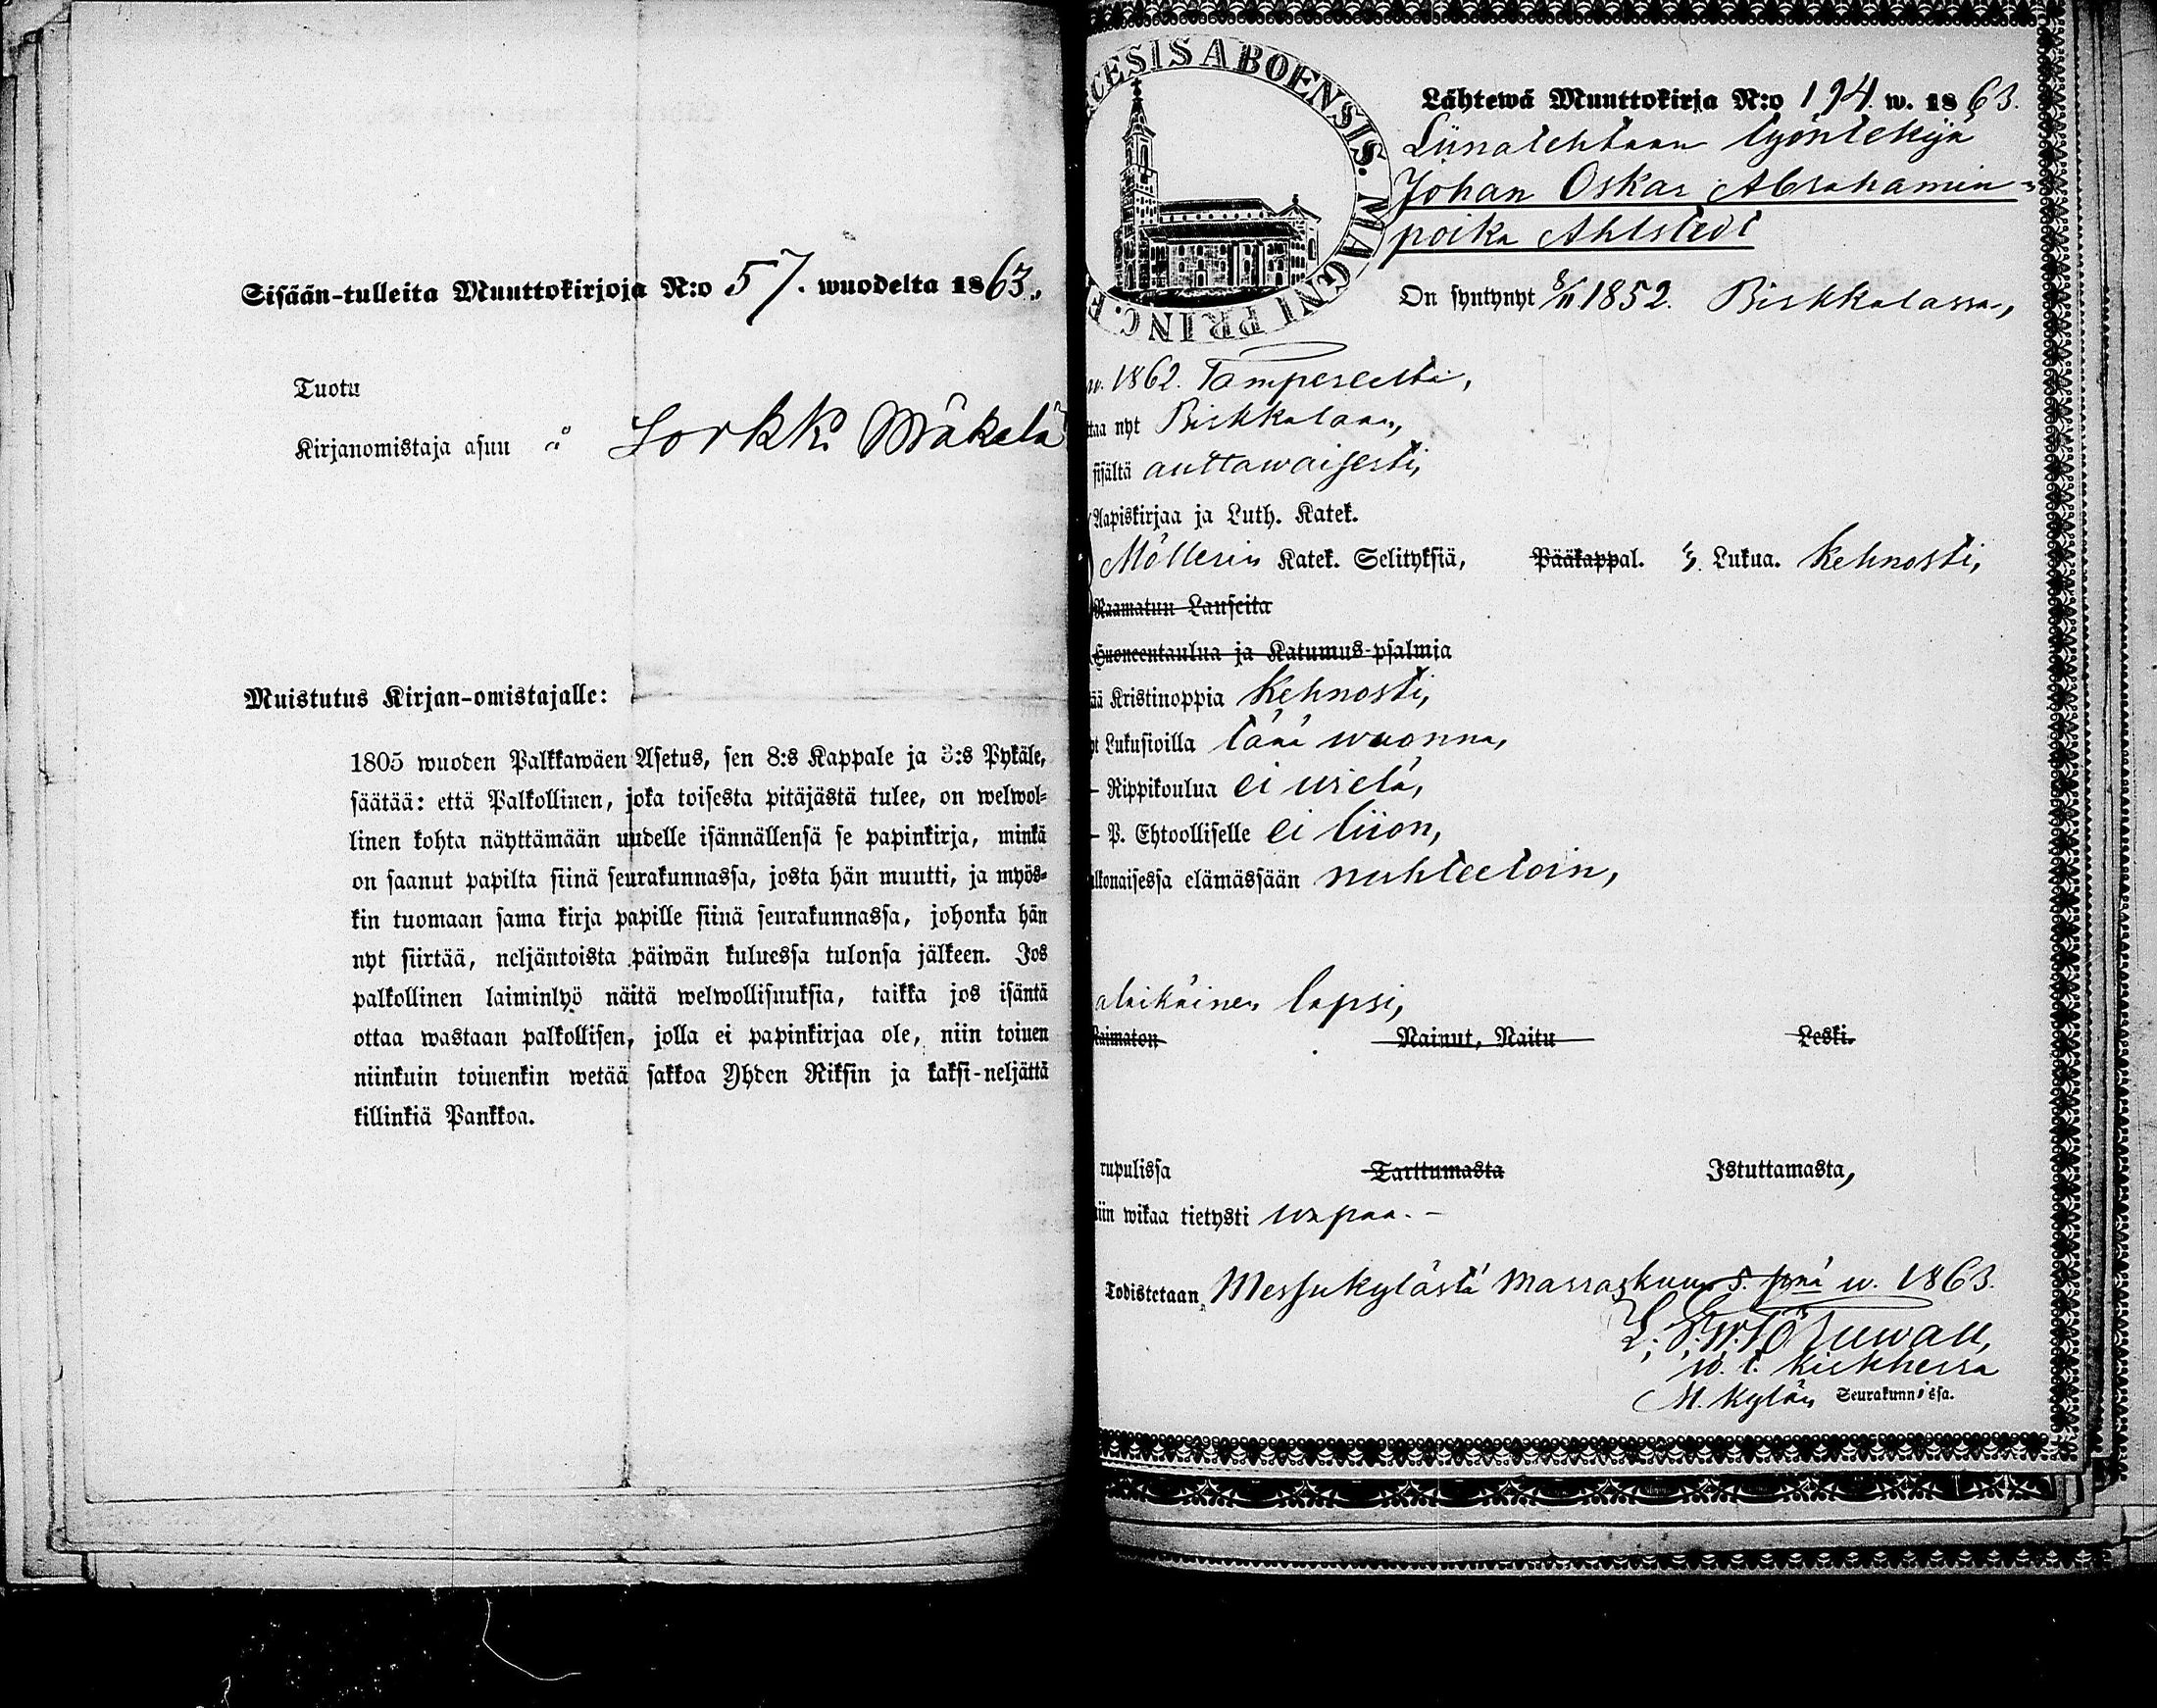 Sisään-tulleita Muuttokirjoja N:o 57. wuodelta 1863.
Tuotu
Kirjanomistaja asuu å Sorkk Mäkelä
Muistutus Kirjan-omistajalle:
1805 wuoden Palkkawäen Asetus, sen 8:s Kappale ja 3:s Pykäle,
säätää: että Palkollinen, joka toisesta pitäjästä tulee, on welwol-
linen kohta näyttämään uudelle isännällensä se papinkirja, minkä
on saanut papilta siinä seurakunnassa, josta hän muutti, ja myös-
kin tuomaan sama kirja papille siinä seurakunnassa, johonka hän
nyt siirtää, neljäntoista päiwän kuluessa tulonsa jälkeen. Jos
palkollinen laiminlyö näitä welwollisuuksia, taikka jos isäntä
ottaa wastaan palkollisen, jolla ei papinkirjaa ole, niin toinen
niinkuin toinenkin wetää sakkoa Yhden Riksin ja kaksi-neljättä
killinkiä Pankkoa.
CESIS ABOENSIS. MAGNI PRINC. F
Lähtewä Muuttokirja N:o 194. w. 1863.
Liinatehtaan työntekijä
Johan Oskar Abrahamin-
poika Ahlstedt
On syntynyt 8/11 1852. Birkkalassa,
w. 1862. Tampereelta,
taa nyt Birkkalaan,
sisältä auttawaisesti,
Aapiskirjaa ja Luth. Katek.
Möllerin Katek. Selityksiä, Pääkappal. Lukua. Kehnosti,
Raamatun Lauseita
Huoneentaulua ja Katumus-psalmia
ää Kristinoppia Kehnosti,
yt Lukusioilla tänä wuonna,
- Rippikoulua ei wielä,
- P. Ehtoolliselle ei liion,
ulkonaisessa elämässään nuhteetoin,
alaikäinen lapsi,
Naimaton Nainut, Naitu Leski.
rupulissa Tarttumasta Istuttamasta,
iin wikaa tietysti wapaa. -
Todistetaan, Messukylästä Marraskuun 5. pnä w. 1863.
w. t. Kirkkherra
M. Kylän Seurakunnissa.